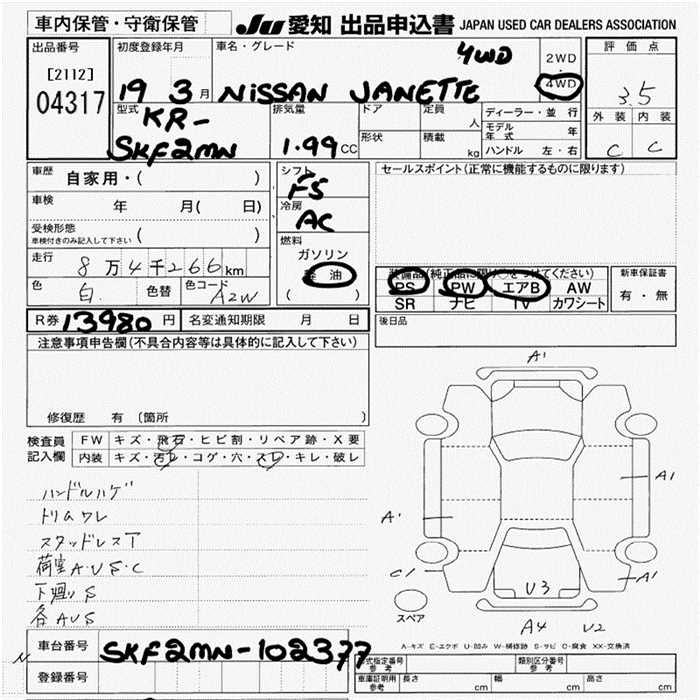 車内保管・守衛保管
JU 愛知 出品申込書 JAPAN USED CAR DEALERS ASSOCIATION
出品番号
[2112]
04317
初度登録年月
19 3 月
車名・グレード
4WD
NiSSAN JANETTE
2WD
4WD
評価点
3.5
外装 内装
C C
型式
KR-
SKF2MN
排気量
1.99 CC
ドア
形状
定員
人
積載
kg
ディーラー・並行
モデル年式 年
ハンドル 左・右
車歴
自家用・( )
車検
年 月( 日)
受検形態
車検付きのみ記入して下さい ( )
走行
8万4千266 km
色
白.
色替
色コード
A2W
シフト
F5
冷房
AC
燃料
ガソリン
軽油
( )
セールスポイント(正常に機能するものに限ります)
装備品(純正品に限り○をつけてください)
PS PW エアB AW
SR ナビ TV カワシート
新車保証書
有・無
後日品
R券 13980 円
名変通知期限 月 日
注意事項申告欄(不具合内容等は具体的に記入して下さい)
修復歴 有 〔箇所 〕
検査員
記入欄
FW キズ・飛石・ヒビ割・リペア跡・X要
内装 キズ・汚レ・コゲ・穴・スレ・キレ・破レ
ハンドルハゲ
トリムワレ
スタッドレスT
荷室A.U.S.C
下廻りS
各AUS
A1
A1
A1
A1
C1
U3
A4
U2
スペア
A-キズ E-エクボ U-凹み W-補修跡 S-サビ C-腐食 XX-交換済
車台番号
SKF2MN-102377
登録番号
型式指定番号
参考
類別区分番号
参考
車庫証明用
参考
長さ cm
幅 cm
高さ cm